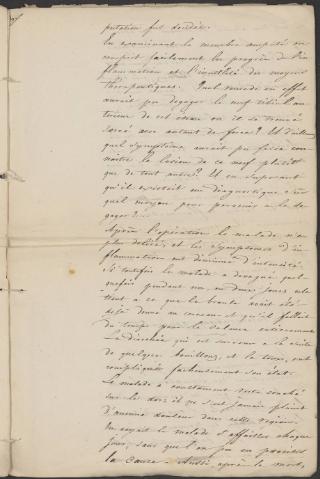 putation fut décidée.
En examinant le membre amputé on
conçoit facilement les progrès de l'in
flammation et l'inutilité des moyens
thérapeutiques. Quel remède en effet
aurait pu dégager le nerf tibial an
térieur de cet état où il se trouvait
serré avec autant de force? Et d'ailleurs
quel symptôme aurait pu faire con
noître la lésion de ce nerf plutôt
que de tout autre? Et en supposant
qu'il existait un diagnostique sûr
quel moyen pour parvenir à le dé
gager?
Après l'opération le malade n'a
plus déliré, et les symptômes d'in
flammation ont diminué d'intensité.
le malade a
pendant un ou deux jours
tout à ce que la
déjà donné au et qu'il fallait
du temps pour la
La diarrhée qui est survenue à la suite
de quelques bouillons, et la toux, ont
compliqué fâcheusement son état.
Le malade a constamment resté couché
sur le dos; il ne s'est jamais plaint
d'aucune douleur dans cette région.
On voyait le malade s'affaiblir chaque
jour, sans que l'on pu en
la cause. Aussi, après la mort,